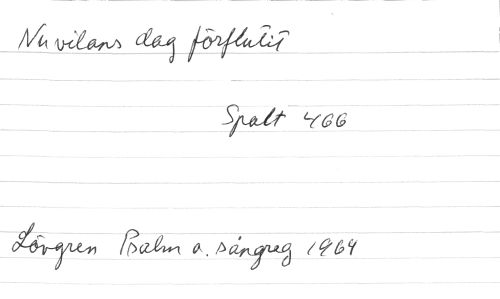 Nu vilans dag förflutit
Spalt 466
Lövgren Psalm o. sångreg 1964